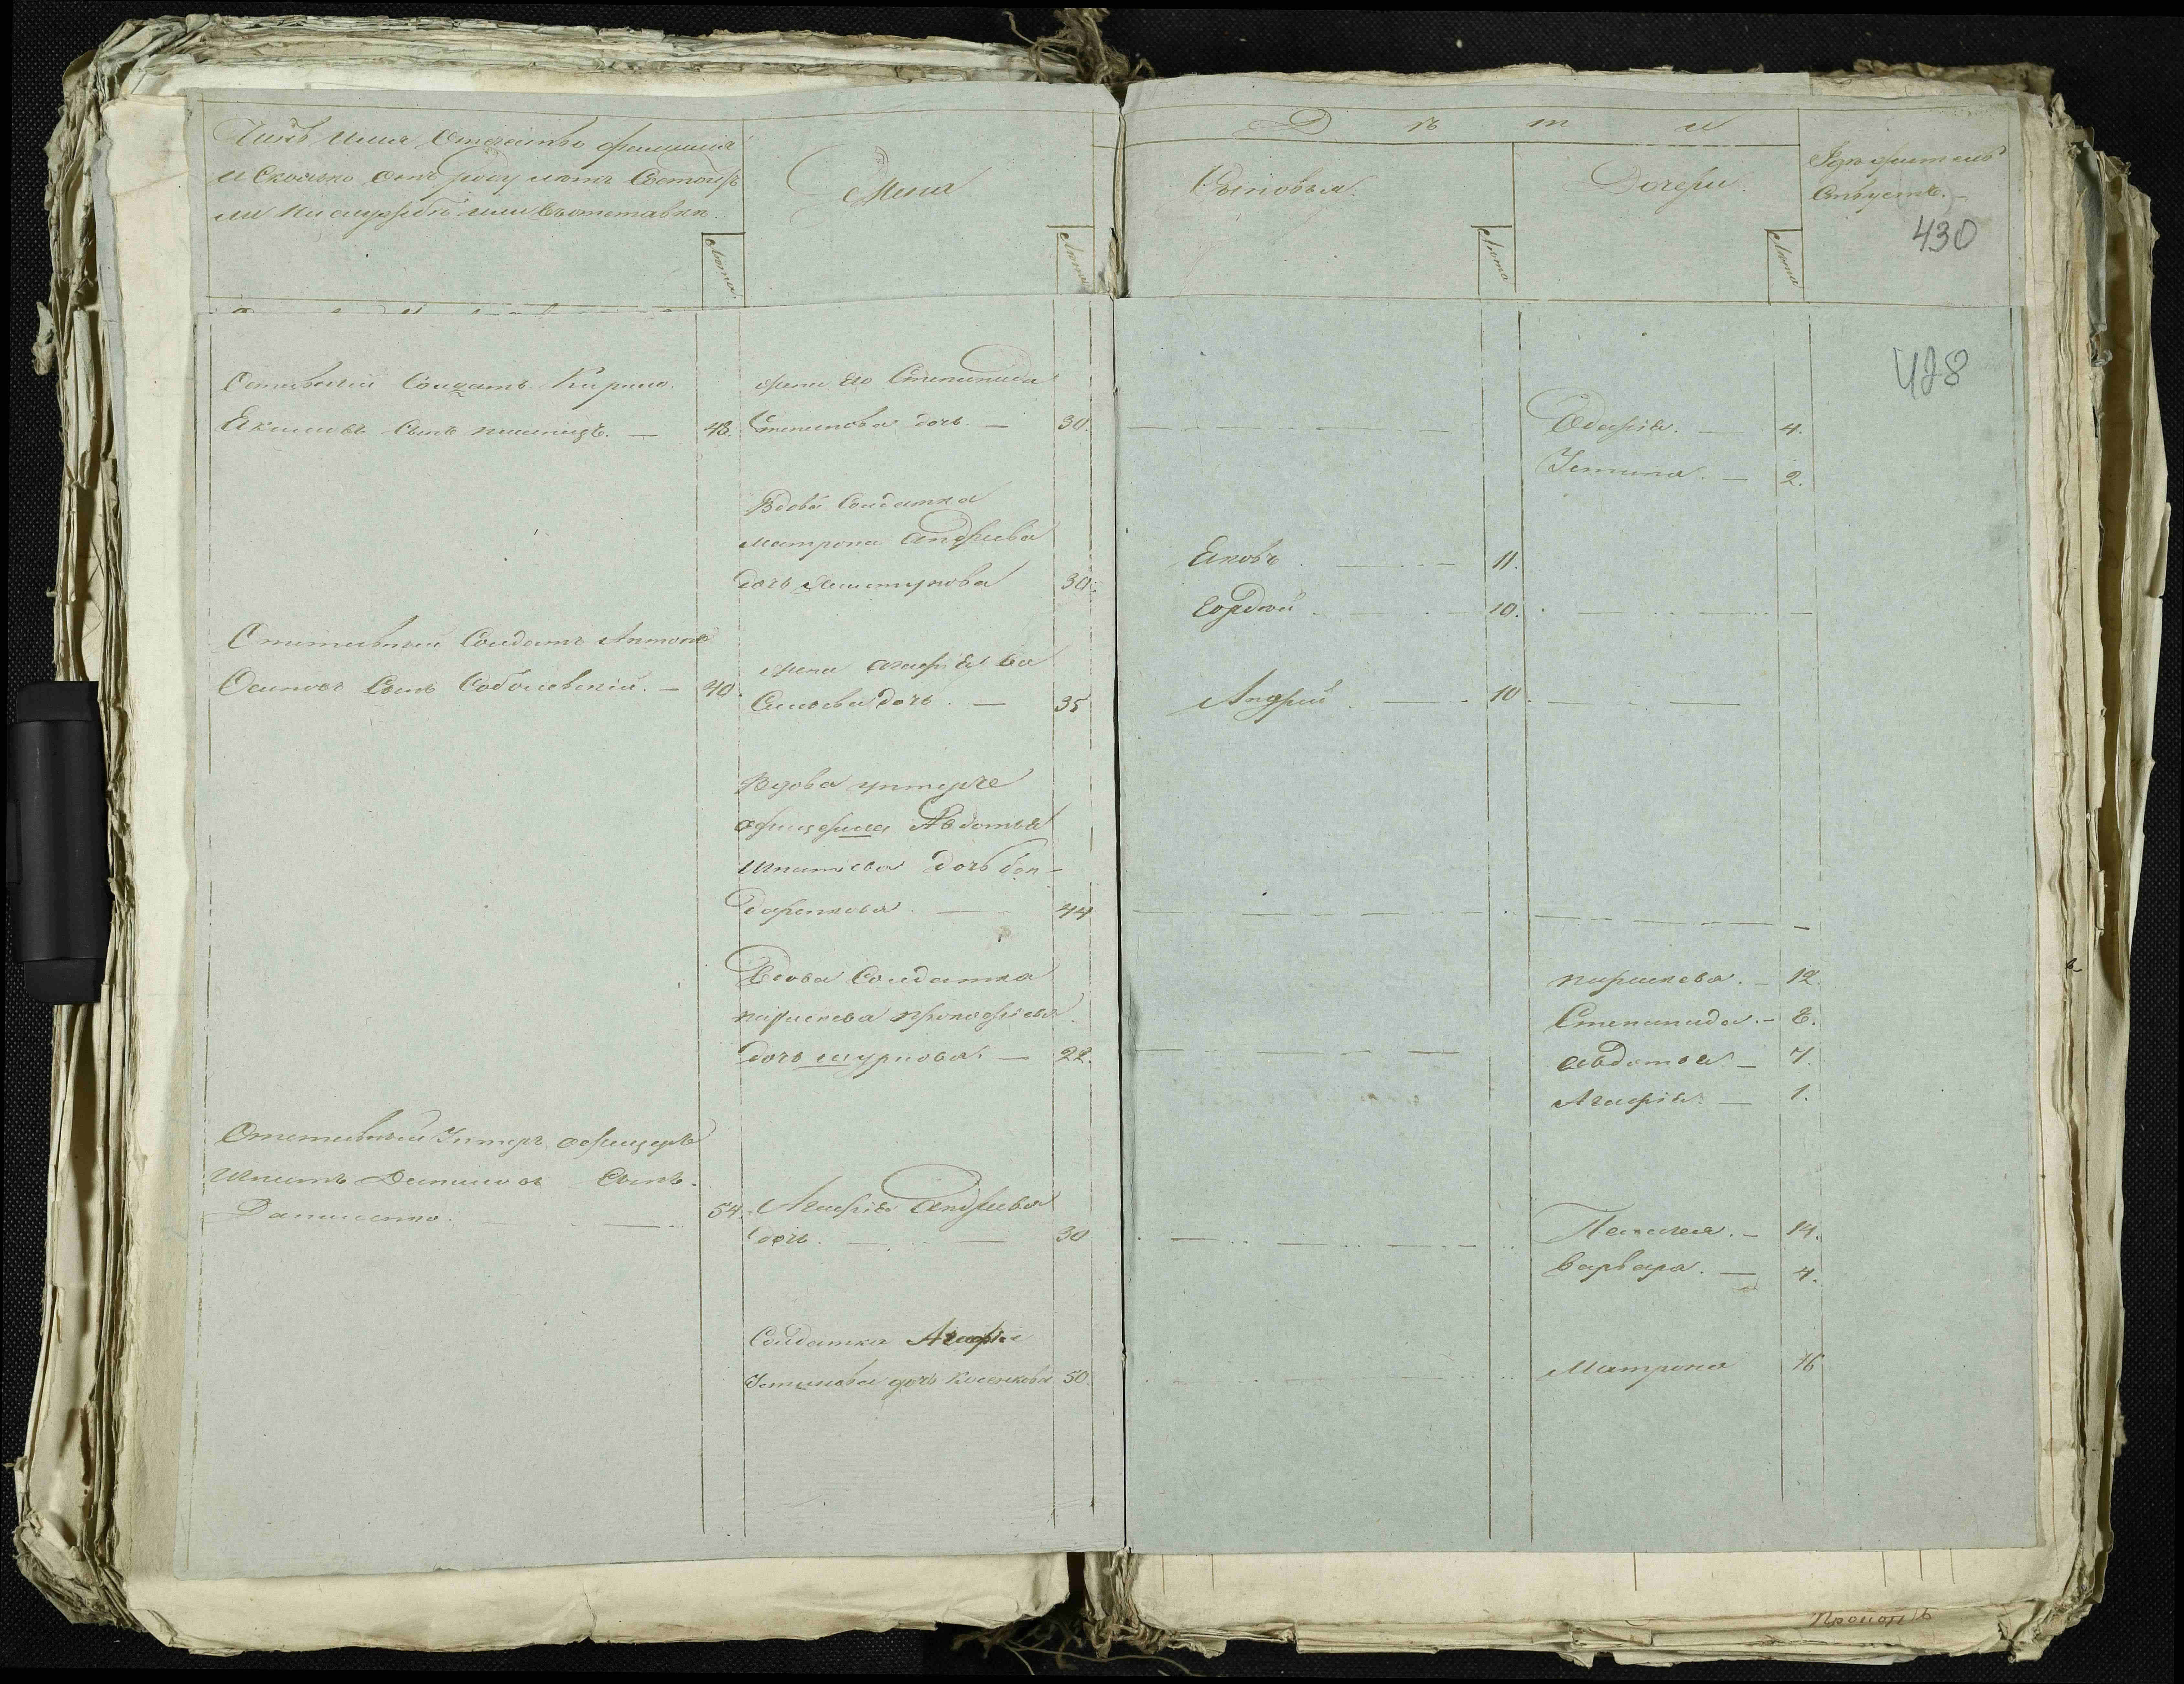 Чинъ имя Отечество фамилия
и Сколько отъ роду летъ Состоитъ
ли на службе или въ отставке.
Лета
Жена
Лета
Дѣти
Сыновья
Лета
Дочери.
Лета
Где жительствуетъ.
430
428
Отставный Солдатъ Кирило
Екимовъ Сынъ 43.
жена его Степанида
Степанова дочь. — 30.
Одария. — 4.
Устина. — 2.
Вдова Солдатка
Матрона Андреева
дочь 30.
Еяковъ 11.
Гордей 10.
Отставный Солдатъ Антонъ
Осиповъ Сынъ Соболевский. — 40.
жена Агафия Са
дочь. — 35
Андрий 10.
Вдова унтеръ
офицерша Авдотья
Игнатиева дочь бон-
даренкова. — 44
Вдова Солдатка
параскева прокофиева
дочь шурпова. — 22.
параскева. — 12.
Степанида. — 8.
авдотья — 7.
Агафия. — 1.
Отставный Унтеръ офицеръ
Игнатъ Даниловъ Сынъ.
Даниленко. 54.
Агафия Андреева
дочь. — 30
Пелагея. — 14.
варвара. — 4.
Солдатка Агафия
Устинова дочь Косенкова 50.
Матрона 16